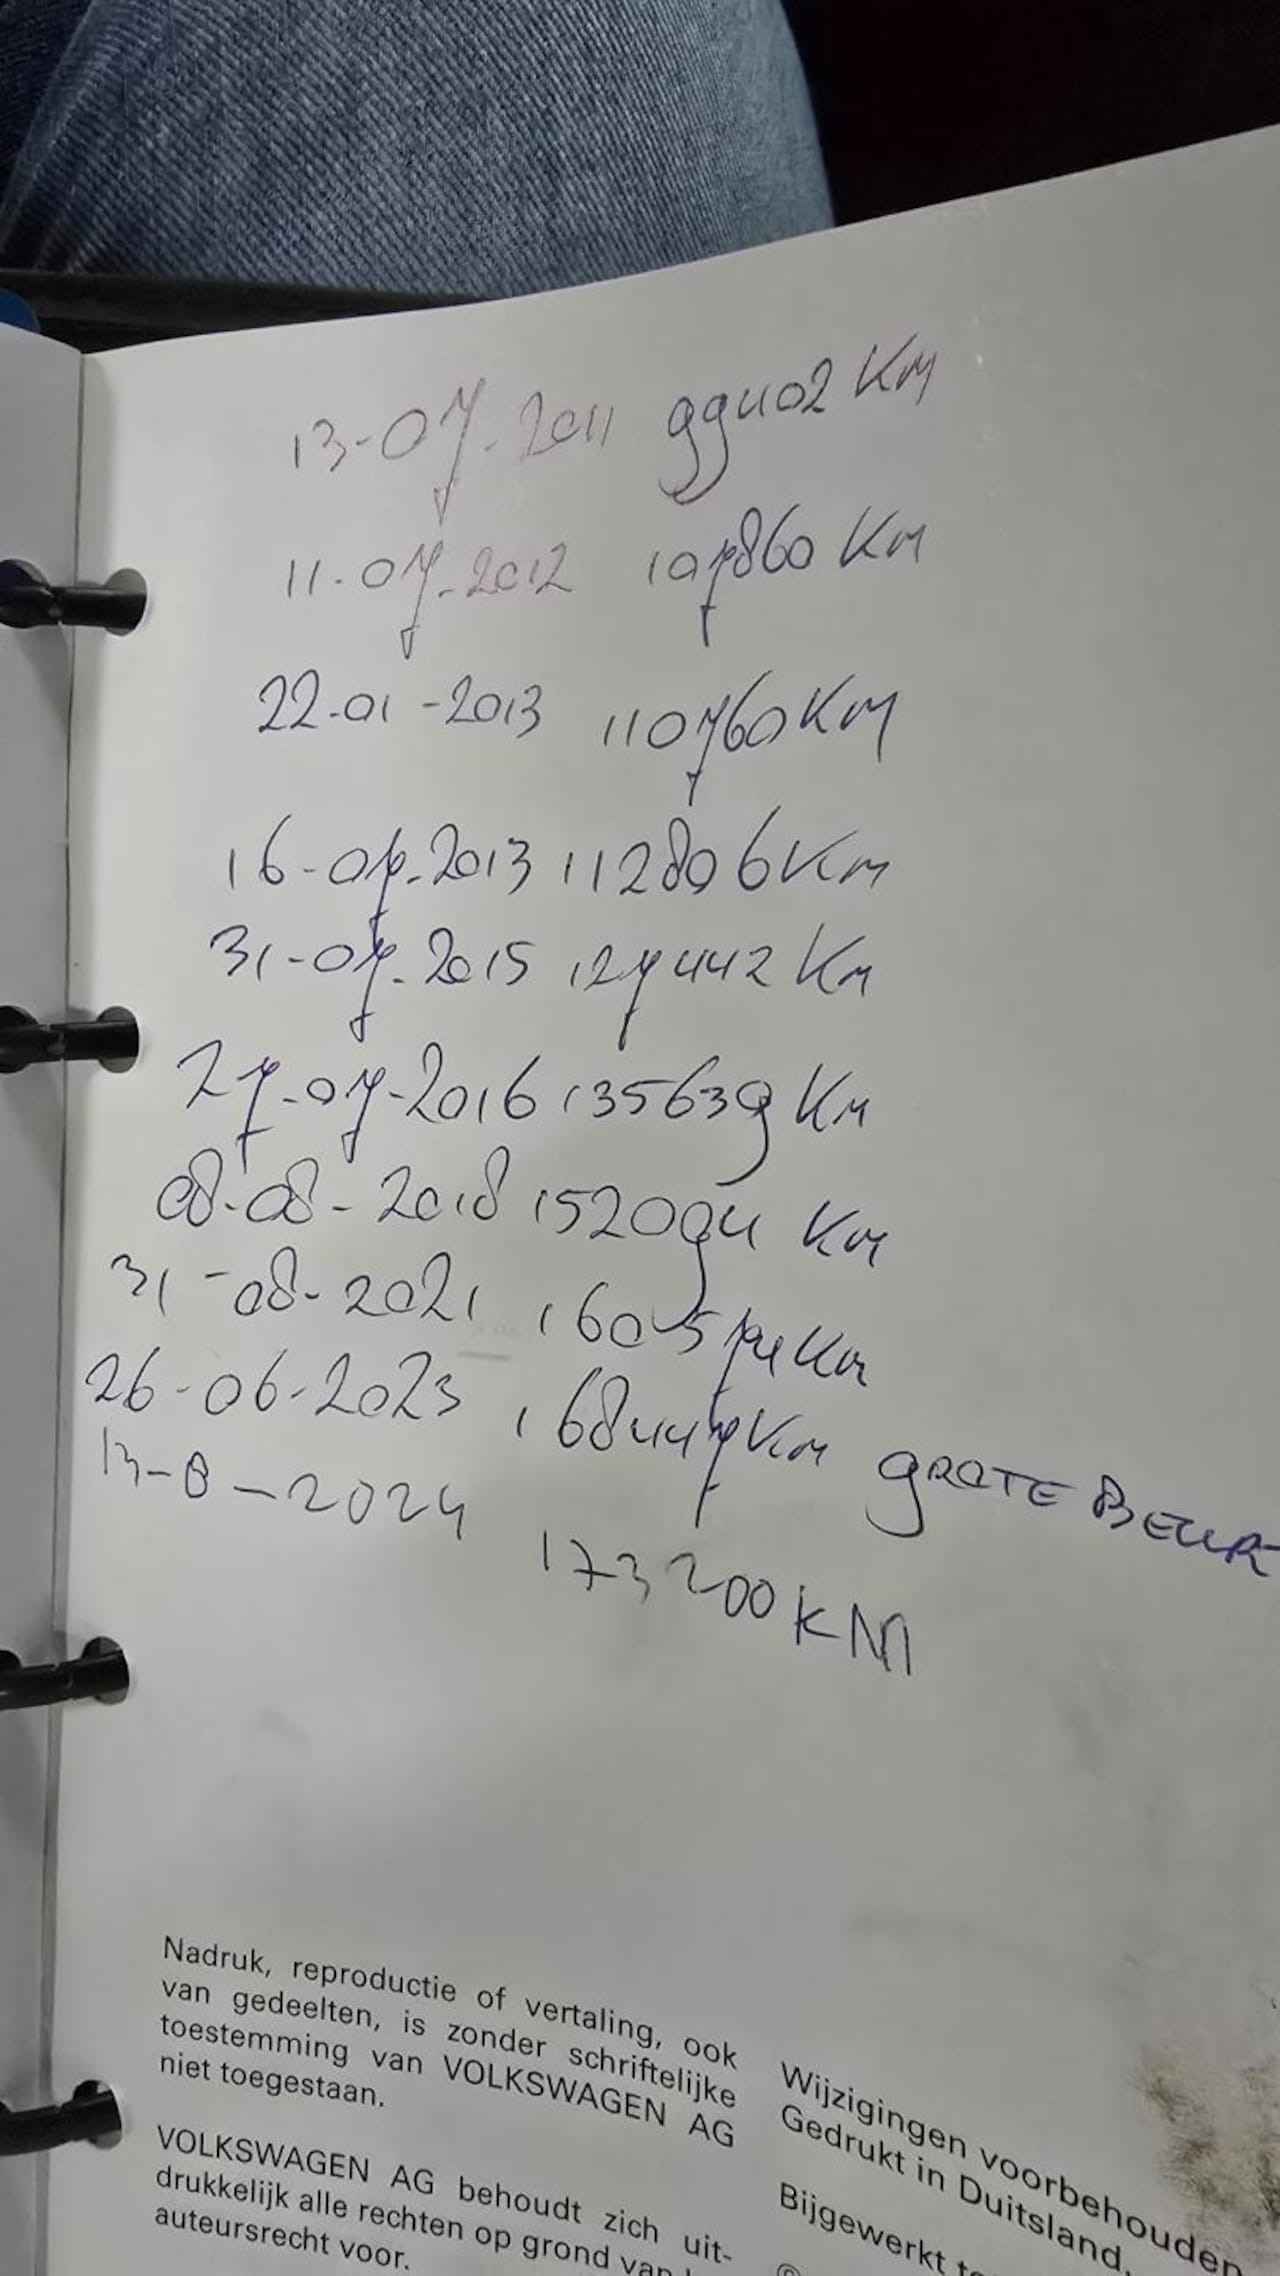 13-07-2011 99402 KM
11-07-2012 107860 KM
22-01-2013 110760 KM
16-07-2013 112806 KM
31-07-2015 127442 KM
27-07-2016 135639 KM
08-08-2018 152094 KM
31-08-2021 160574 KM
26-06-2023 168447 KM GROTE BEURT
13-8-2024 173200 KM
Nadruk, reproductie of vertaling, ook
van gedeelten, is zonder schriftelijke
toestemming van VOLKSWAGEN AG
niet toegestaan.
VOLKSWAGEN AG behoudt zich uit-
drukkelijk alle rechten op grond van
auteursrecht voor.
Wijzigingen voorbehouden
Gedrukt in Duitsland.
Bijgewerkt
©